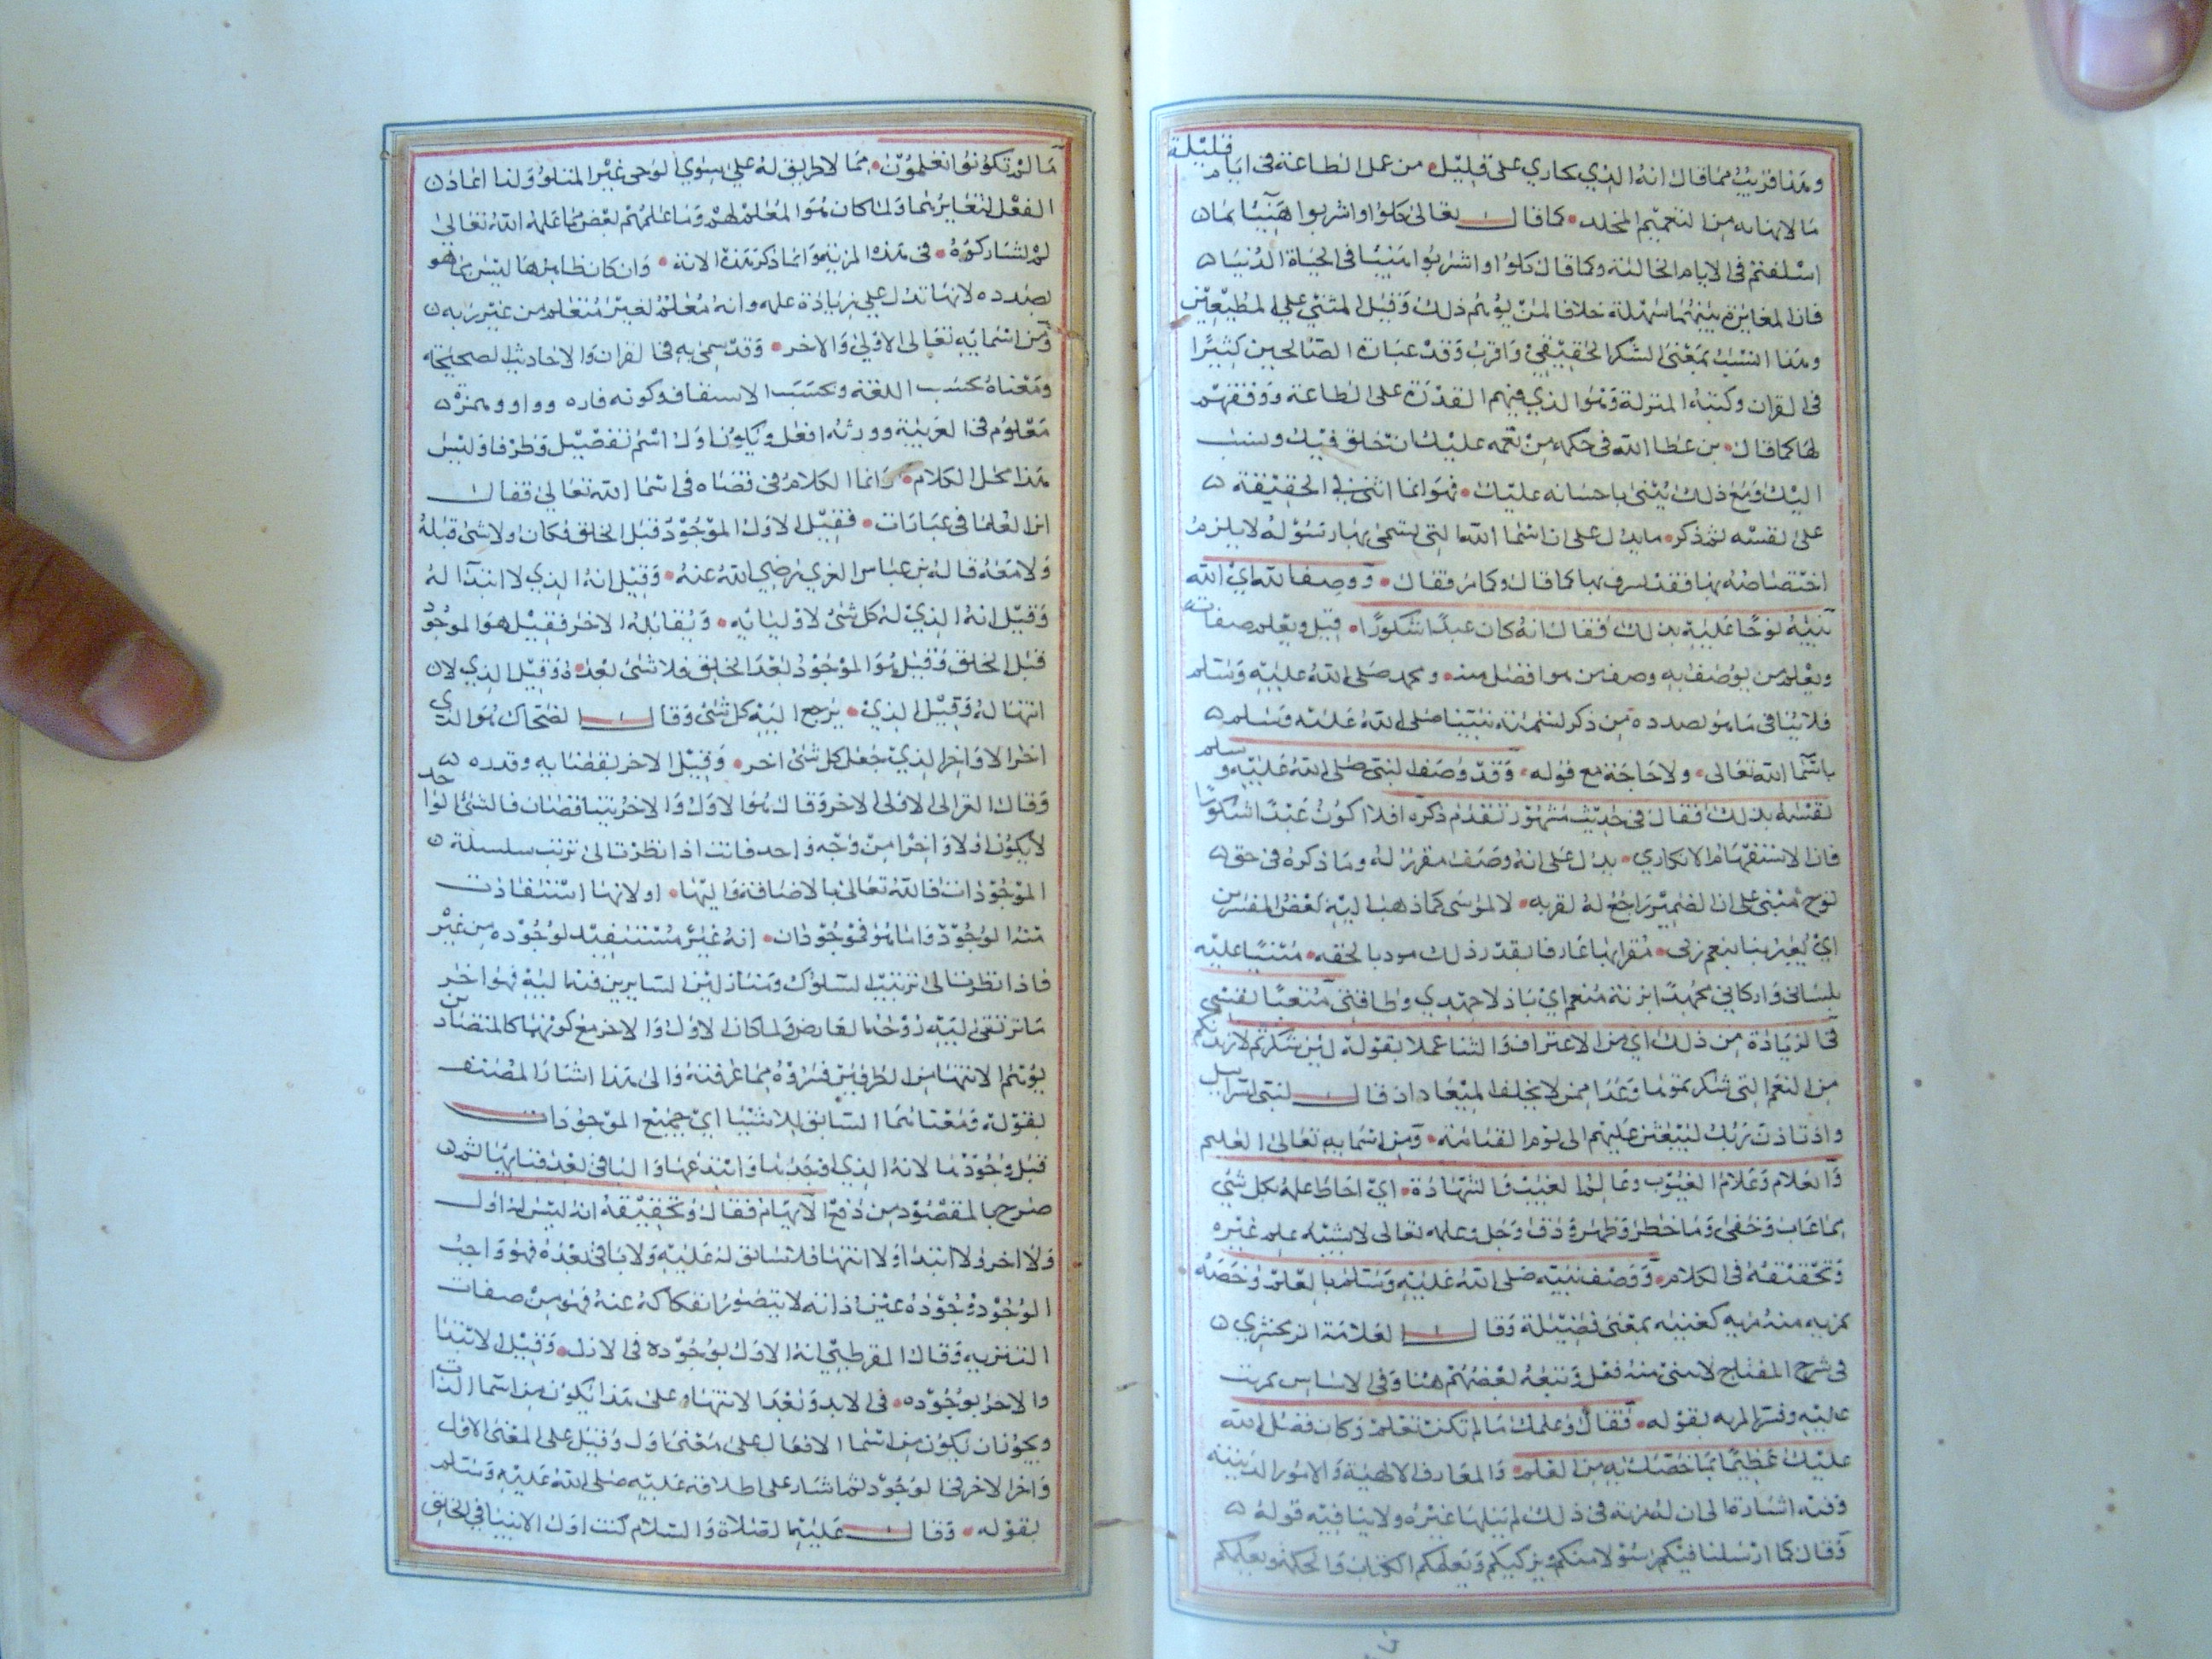 وهذا قريب مما قال انه الذي يجازي على قليل من عمل الطاعة في ايام قليلة
ما لا نهاية من النعيم المخلد كما قال تعالى كلوا واشربوا هنيئا بما
اسلفتم في الايام الخالية وكما قال كلوا واشربوا هنيئا في الحياة الدنيا
فان المغايرة بينهما سهلة خلافا لمن يوهم ذلك وقيل المثني على المطيعين
وهذا انسب بمعنى الشكر الحقيقي واقرب وقد عباده الصالحين كثيرا
في القران وكتبه المنزلة وهو الذي فيهم القدرة على الطاعة ووفقهم
لها كما قال بن عطا الله في حكمه من نعمه عليك ان خلق فيك ونسب
اليك ومع ذلك يثني باحسانه عليك فهو انما اثنى في الحقيقة
على نفسه ثم ذكر ما يدل على ان اسما الله التي يسمى بها رسوله لا يلزم
اختصاصه بها فقد كما قال وكما مر فقال ووصف الله اي الله
نبيه نوحا عليه بذلك فقال انه كان عبدا شكورا قيل ويعلم صفات
ويعلم من يوصف به وصف من هو افضل منه ومحمد صلى الله عليه وسلم
فلا ينافي ما هو بصدده من ذكر تسمية نبينا صلى الله عليه وسلم
باسما الله تعالى ولا حاجة مع قوله وقد وصف النبي صلى الله عليه وسلم
نفسه بذلك فقال في حديث مشهور تقدم ذكره افلا اكون عبدا شكورا
فان الاستفهام الانكاري يدل على انه وصف مقرر له وما ذكره في حق
نوح مبني على ان الضمير راجع له لقربه لا لموسى كما ذهب اليه بعض المفسرين
اي بنعم ربي مقرا بها عارفا بقدر ذلك مثنيا عليه
بلساني واركاني مجهدا منعم اي باذلا جهدي وطاقتي متعبا نفسي
في الزيادة من ذلك اي من الاعتراف والثنا عملا بقوله لئن شكرتم لازيدنكم
من النعم التي شكرتموها وعدا ممن لا يخلف الميعاد اذ قال لنبي اسراييل
واذ تاذن ربك ليبعثن عليهم الى يوم القيامة ومن اسمايه تعالى العليم
والعلام وعلام الغيوب وعالم الغيب والشهادة اي احاط علمه بكل شي
بما غاب وخفي وما خطر وظهر ودق وجل وعلمه تعالى لا يشبه علم غيره
وتحقيقه في الكلام ووصف نبيه صلى الله عليه وسلم بالعلم وخصه
بمزيه منه مزيه كغنيه بمعنى فضيلة وقال العلامة الزمخشري
في شرح المفتاح لا يبنى منه فعل وتبعه بعضهم هنا وفي الاساس تمزيت
عليه وفسر المزيه بقوله فقال وعلمك ما لم تكن تعلم وكان فضل الله
عليك عظيما بما خصك به من العلم والمعارف الالهية والامور الدينيه
وفيه اشارة الى ان له مزية في ذلك لم ينلها غيره ولا ينافيه قوله
وقال كما ارسلنا فيكم رسولا منكم يزكيكم ويعلمكم الكتاب والحكمة ويعلمكم
ما لم تكونوا تعلمون مما لا طريق له على سوى الوحي غير المتلو ولذا اعاد
الفعل لتغايرهما ولما كان هو المعلم لهم وما علمهم بعض ما علمه الله تعالى
لم تشاركوه في هذه المزيه وانما ذكر هذه الاية وان كان ظاهرها ليس مما هو
بصدده لانها تدل على زيادة علمه وانه معلم لغير متعلم من غير ربه
ومن اسمايه تعالى الاول والاخر وقد سمي به في القران والاحاديث الصحيحة
ومعناه بحسب اللغة وبحسب الاشتقاق وكونه مادة وواو وهمزة
معلوم في العربية ووزنه افعل ويكون اول اسم تفضيل وظرفا وليس
هذا محل الكلام وانما الكلام في معناه في اسما الله تعالى فقال
ان العلما في عبارات فقيل الاول الموجود قبل الخلق فكان ولا شي قبله
ولا معه قاله بن عباس العزي رضي الله عنه وقيل انه الذي لا ابتدا له
وقيل انه الذي له كل شي لاوليايه ويقابله الاخر فقيل هو الموجود
قبل الخلق وقيل هو الموجود بعد الخلق فلا شي بعده وقيل الذي لا
انتها له وقيل الذي يرجع اليه كل شي وقال الضحاك هو الذي
اخر الاواخر الذي جعل كل شي اخر وقيل الاخر بقضايه وقدره
وقال الغزالي الاول الاخر وقال هو الاول والاخر متناقضان فالشي الواحد
لا يكون اولا واخرا من وجه واحد فانت اذا نظرت الى ترتيب سلسلة
الموجودات فالله تعالى بالاضافة اليها اولا لانها استفادت
منه الوجود واما هو فموجود انه غير مستفيد لوجوده من غيره
فاذا نظرت الى ترتيب السلوك ومنازل السايرين فيها اليه فهو اخر
ما ترتقي اليه درجات العارفين ولما كان الاول والاخر مع كونهما كالمتضادان
يوهم الانتها من الطرفين فسروه بما عرفته والى هذا اشار المصنف
بقوله ومعناهما السابق للاشيا اي جميع الموجودات
قبل وجودها لانه الذي اوجدها وابتدعها والباقي بعد فنايها ثم
صرح بالمقصود من دفع الايهام فقال وتحقيقه انه ليس له اول
ولا اخر ولا ابتدا ولا انتها فلا سابق له عليه ولا باقي بعده فهو واجب
الوجود وجوده عين ذاته لا يتصور انفكاكه عنه فهو من صفات
التنزيه وقال القرطبي انه الاول بوجوده في الازل وقيل الابتدا
والاخر بوجوده في الابد وبعد الانتها وعلى هذا يكون من اسما الذات
ويجوز ان يكون من اسما الافعال على معنى اول وقيل على المعنى الاول
واخر الاخر في الوجود ثم اشار على اطلاقه عليه صلى الله عليه وسلم
بقوله وقال عليه الصلاة والسلام كنت اول الانبيا في الخلق